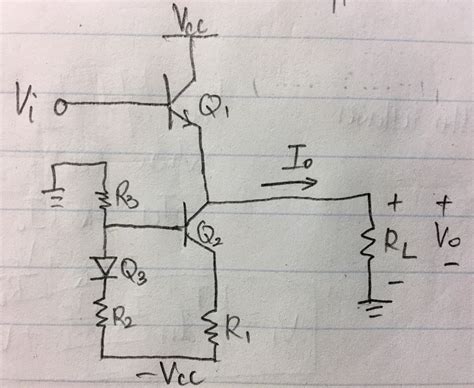 Vcc
Vi
Q1
Io
R3
+ +
Q2
RL
Vo
Q3
- -
R2
R1
-Vcc